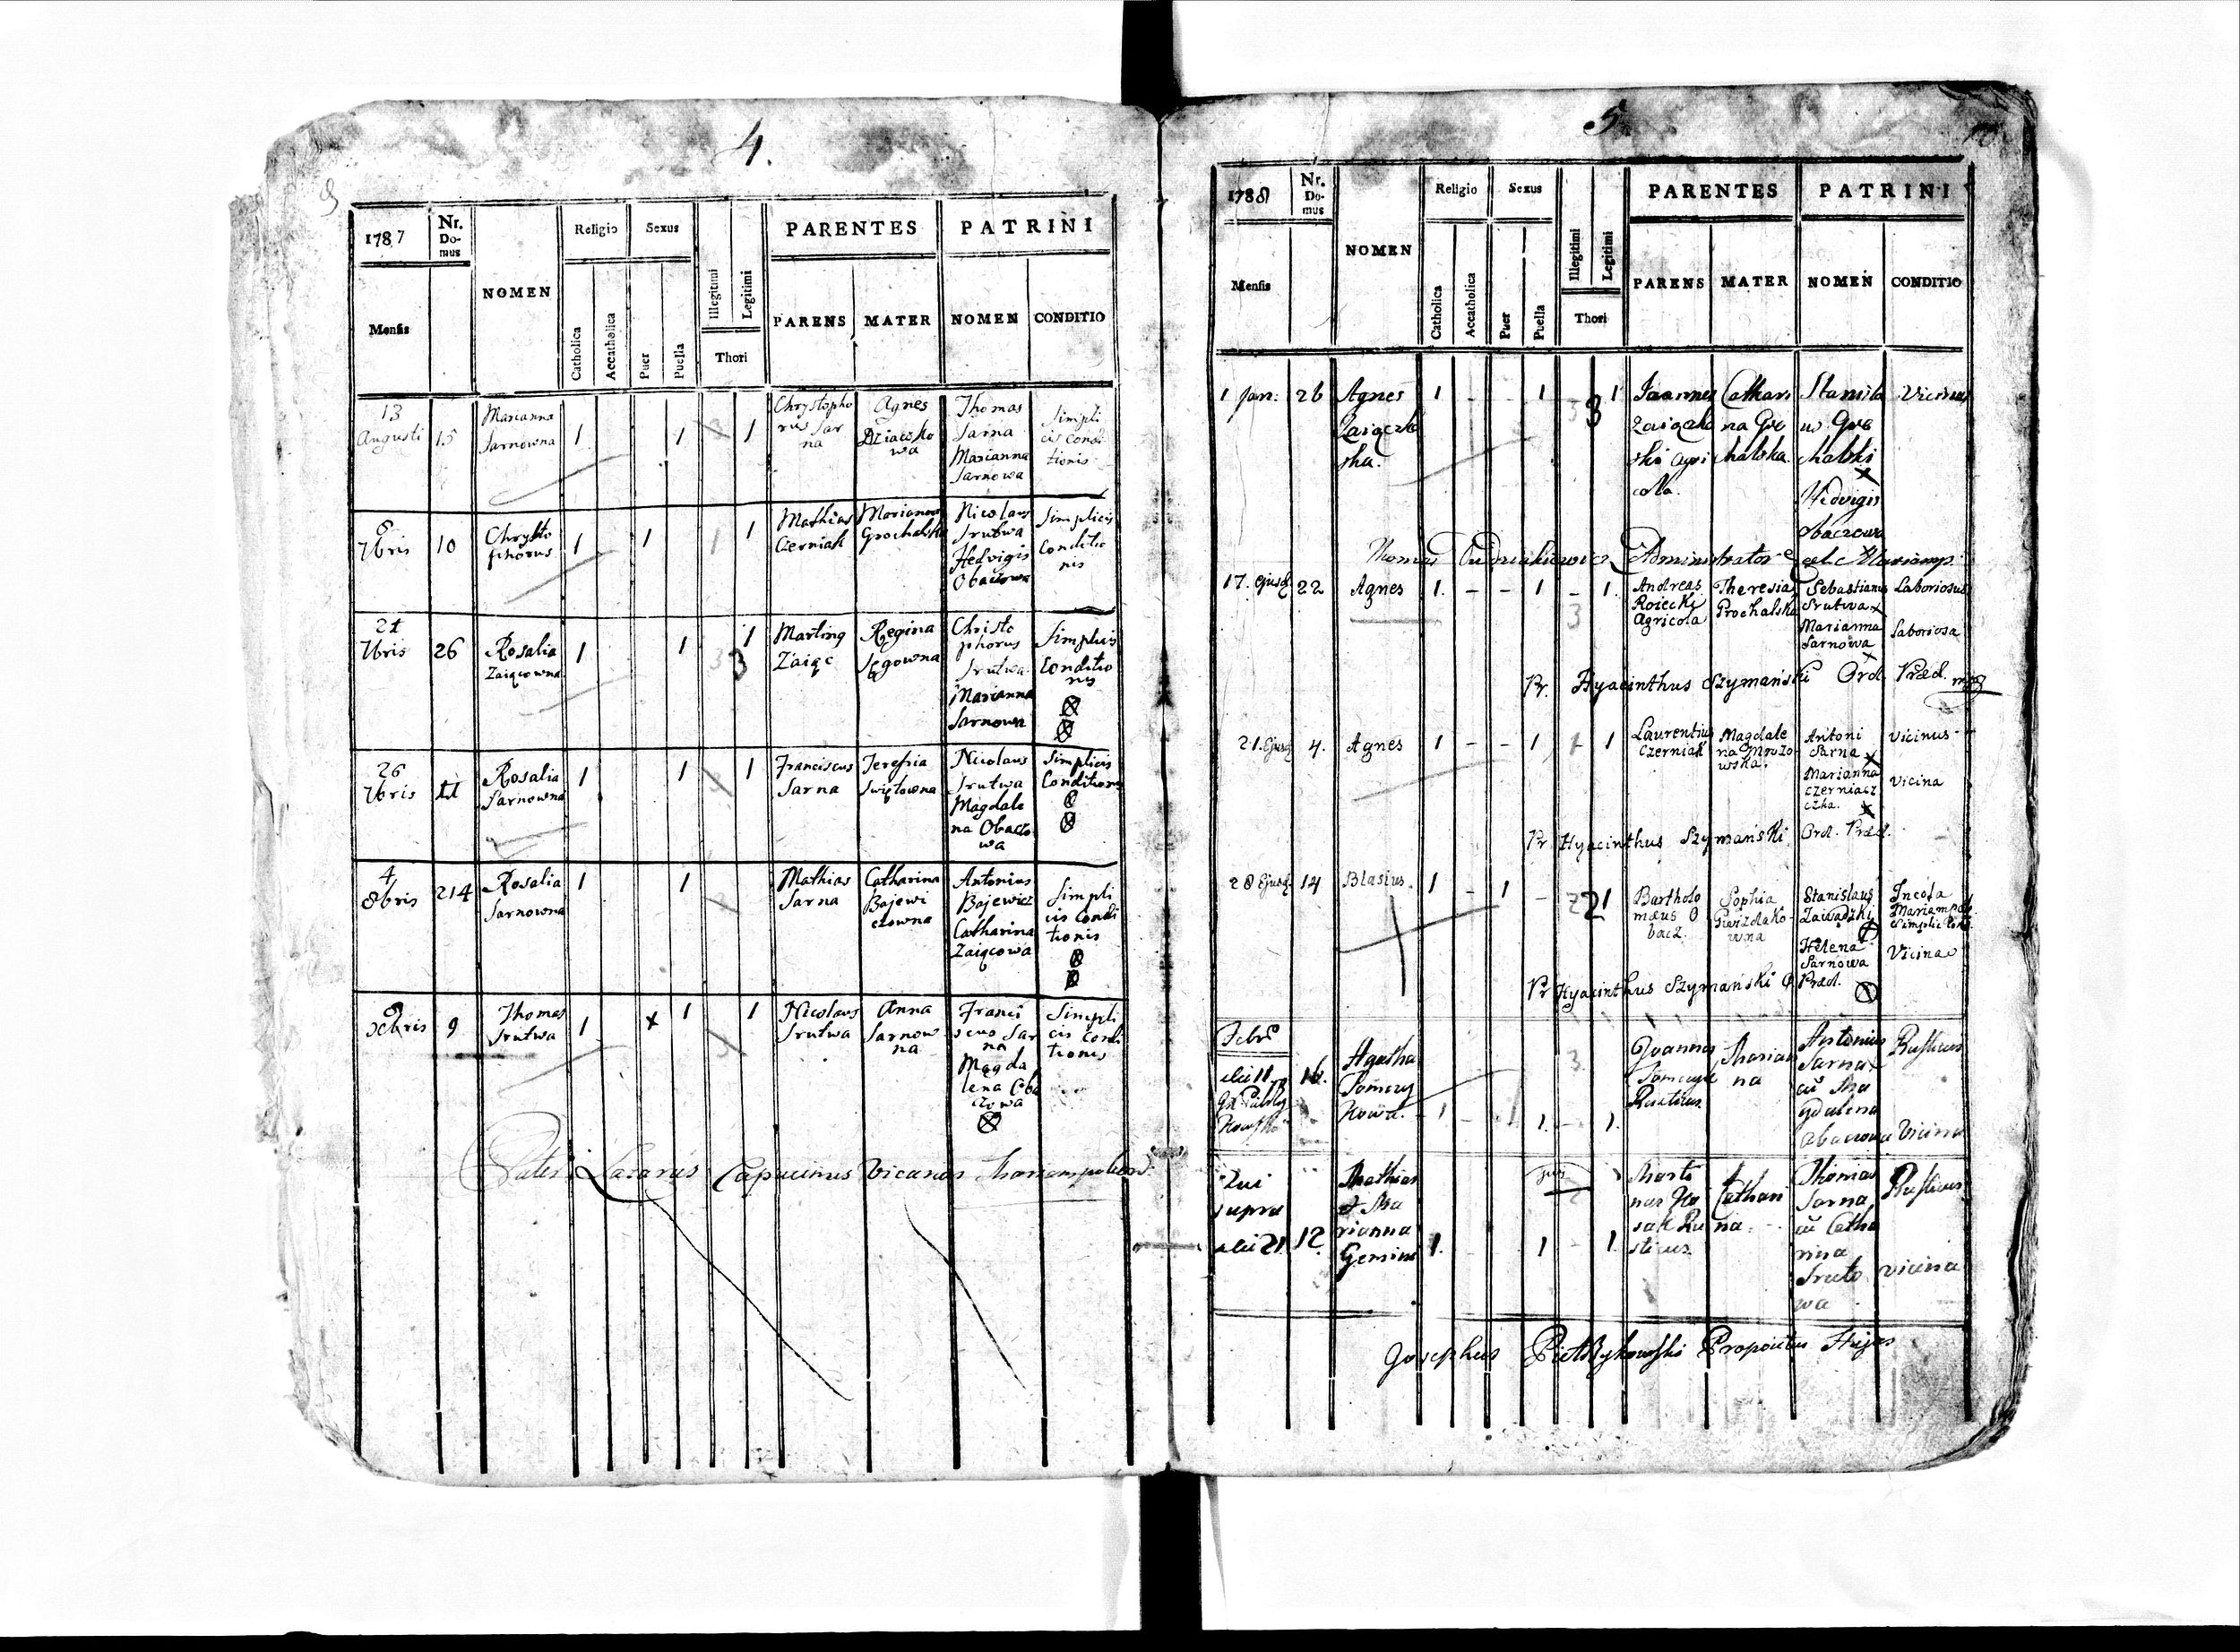 4.
1787
Nr. Domus
NOMEN
Religio
Sexus
PARENTES
PATRINI
Mensis
Catholica
Accatholica
Puer
Puella
Illegitimi
Legitimi
Thori
PARENS
MATER
NOMEN
CONDITIO
13 Augusti 15 Marianna Sarnowna 1 1 1 Chrystophorus Sarna Agnes Thomas Sarna Marianna Sarnowa Simplicis Conditionis
8 7bris 10 Chrystophorus 1 1 1 Mathias Czerniak Marianna Grochalska Nicolaus Srutwa Hedvigis Obaczowa Simplicis Conditionis
21 7bris 26 Rosalia Zaiącowna 1 1 1 3 Marting Zaiąc Regina Christophorus Srutwa Marianna Sarnowa Simplicis Conditionis
26 7bris 11 Rosalia Sarnowna 1 1 1 Franciscus Sarna Nicolaus Srutwa Magdalena Obaczowa Simplicis Conditionis
4 8bris 214 Rosalia Sarnowna 1 1 Mathias Sarna Catharina Bajewiczowna Antonius Bajewicz Catharina Zaiącowa Simplicis Conditionis
9 Thomas Srutwa 1 x 1 1 Nicolaus Srutwa Anna Sarnowna Franciscus Sarna Magdalena Obaczowa Simplicis Conditionis
Pater Lazarus Capucinus Vicarius
5
1788
Nr. Domus
NOMEN
Religio
Sexus
PARENTES
PATRINI
Mensis
Catholica
Accatholica
Puer
Puella
Illegitimi
Legitimi
Thori
PARENS
MATER
NOMEN
CONDITIO
1 Jan: 26 Agnes 1 - - 1 1 3 Joannes agricola. Catharina Grochalska. Stanislaus Grochalski Hedvigis Obaczowa Vicinus
Thomas Administrator
17. ejusd. 22 Agnes 1. - - 1 - 1. Andreas Roiecki Agricola Theresia Grochalska Sebastianus Srutwa Marianna Sarnowa Laboriosus Laboriosa
Fr. Hyacinthus Szymański Ord. Præd. mp
21. Ejusd 4. Agnes 1 - - 1 1 Laurentius Czerniak Magdalena Mrozowska. Antoni Sarna Marianna Vicinus Vicina
Fr. Hyacinthus Szymański Ord. Præd.
28 Ejusd. 14 Blasius. 1 - 1 - 21 Bartholomæus Obacz. Sophia Stanislaus Zawadzki Helena Sarnowa Incola Vicina
Fr Hyacinthus Szymański O Præd.
Febr
die 11. 16. Agatha 1 1. - 1. Joannes Rusticus Marianna Antonius Sarna cū Magdalena Obaczowa Rusticus Vicina
Qui supra die 21 12. Mathias et Marianna Gemini 1. 1 - 1. Martinus Rusticus Catharina. Thomas Sarna cū Catharina Srutowa Rusticus vicina
Josephus